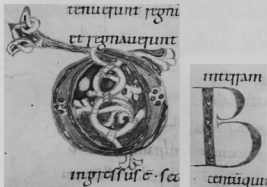 tenuerunt regni
et regnauerunt
ingressus e· sed
interram
B
centūqui